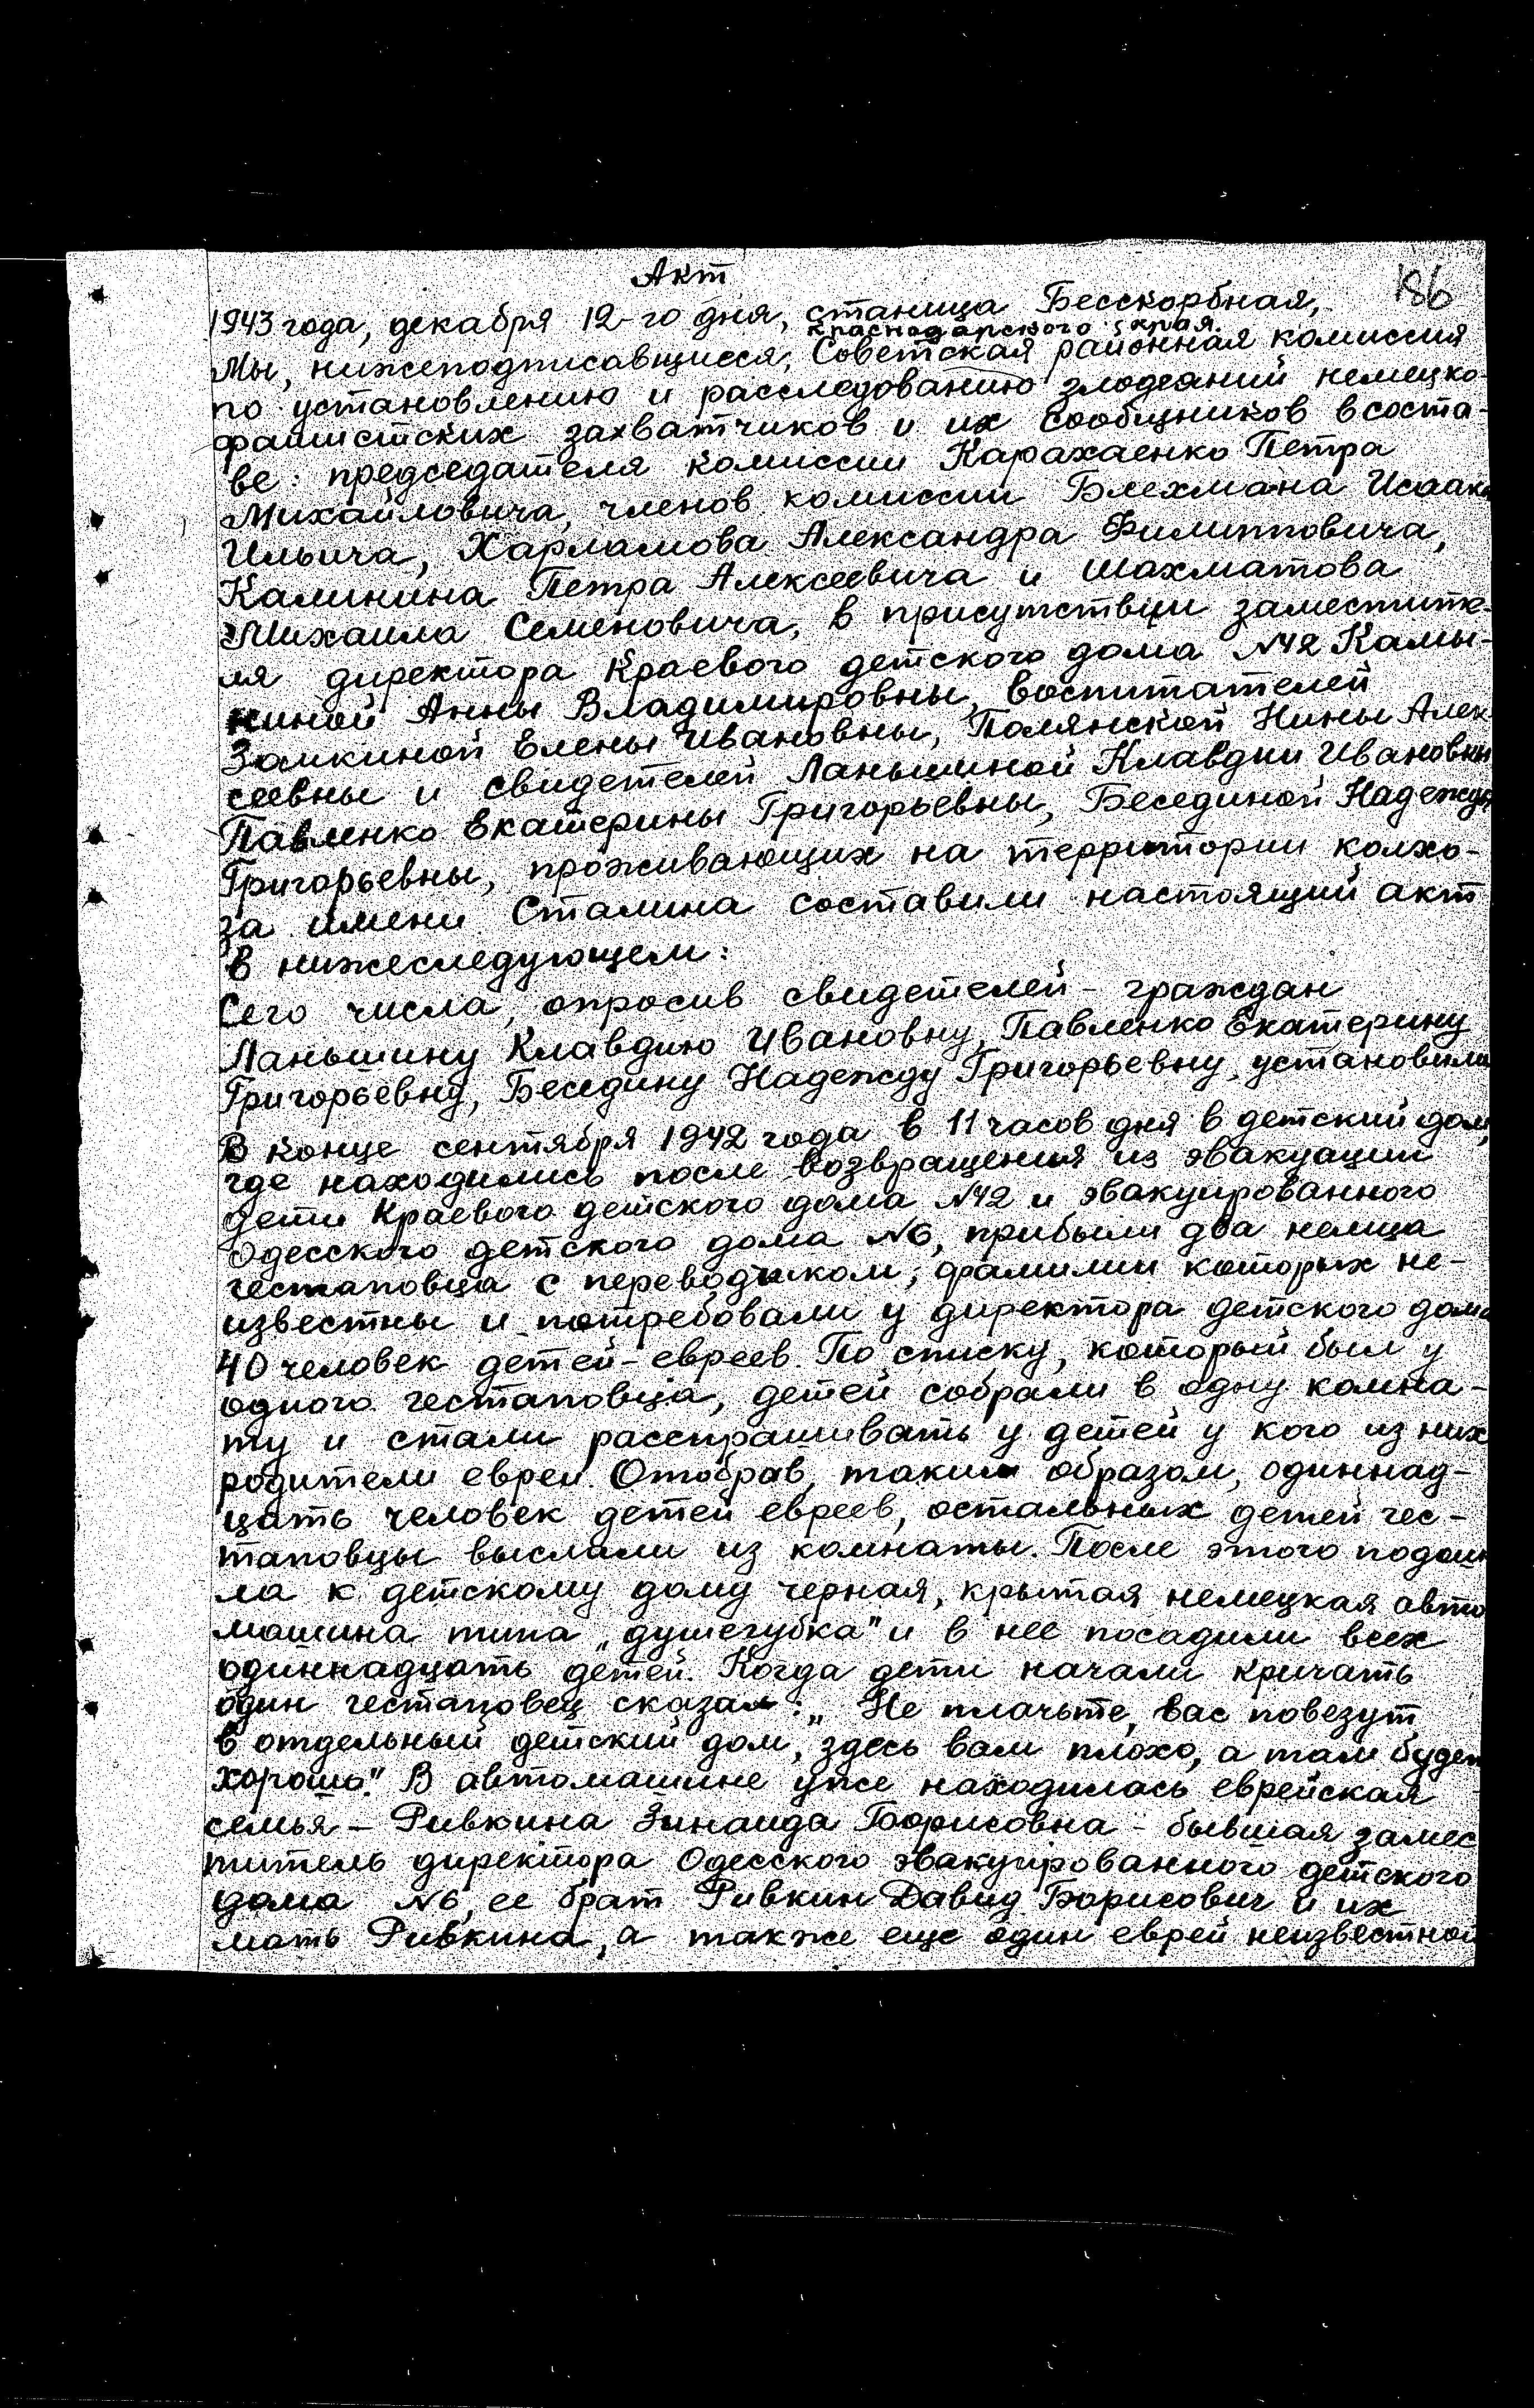 Акт
186
1943 года, декабря 12-го дня, станица Бесскорбная,
Краснодарского края.
Мы, нижеподписавшиеся, Советская районная комиссия
по установлению и расследованию злодеяний немецко-
фашистских захватчиков и их сообщников в соста-
ве: председателя комиссии Карахаенко Петра
Михайловича, членов комиссии Блехмана Исаака
Ильича, Харламова Александра Филипповича,
Калинина Петра Алексеевича и Шахматова
Михаила Семеновича, в присутствии заместите-
ля директора Краевого детского дома №42 Камы-
ниной Анны Владимировны, воспитателей
Замкиной Елены Ивановны, Полянской Нины Алек-
сеевны и свидетелей Ланьшиной Клавдии Ивановны
Павленко Екатерины Григорьевны, Бесединой Надежды
Григорьевны, проживающих на территории колхо-
за имени Сталина составили настоящий акт
в нижеследующем:
Сего числа, опросив свидетелей - граждан
Ланьшину Клавдию Ивановну, Павленко Екатерину
Григорьевну, Беседину Надежду Григорьевну, установили
В конце сентября 1942 года в 11 часов дня в детский дом,
где находились после возвращения из эвакуации
дети Краевого детского дома №42 и эвакуированного
Одесского детского дома №6, прибыли два немца
гестаповца с переводчиком, фамилии которых не-
известны и потребовали у директора детского дома
40 человек детей-евреев. По списку, который был у
одного гестаповца, детей собрали в одну комна-
ту и стали расспрашивать у детей у кого из них
родители евреи. Отобрав, таким образом, одиннад-
цать человек детей евреев, остальных детей гес-
таповцы выслали из комнаты. После этого подош-
ла к детскому дому черная, крытая немецкая авто
машина типа „душегубка" и в нее посадили всех
одиннадцать детей. Когда дети начали кричать
один гестаповец сказал: „Не плачьте, вас повезут
в отдельный детский дом, здесь вам плохо, а там будет
хорошо." В автомашине уже находилась еврейская
семья - Ривкина Зинаида Борисовна - бывшая замес
титель директора Одесского эвакуированного детского
дома №6, ее брат Ривкин Давид Борисович и их
мать Ривкина, а также еще один еврей неизвестной